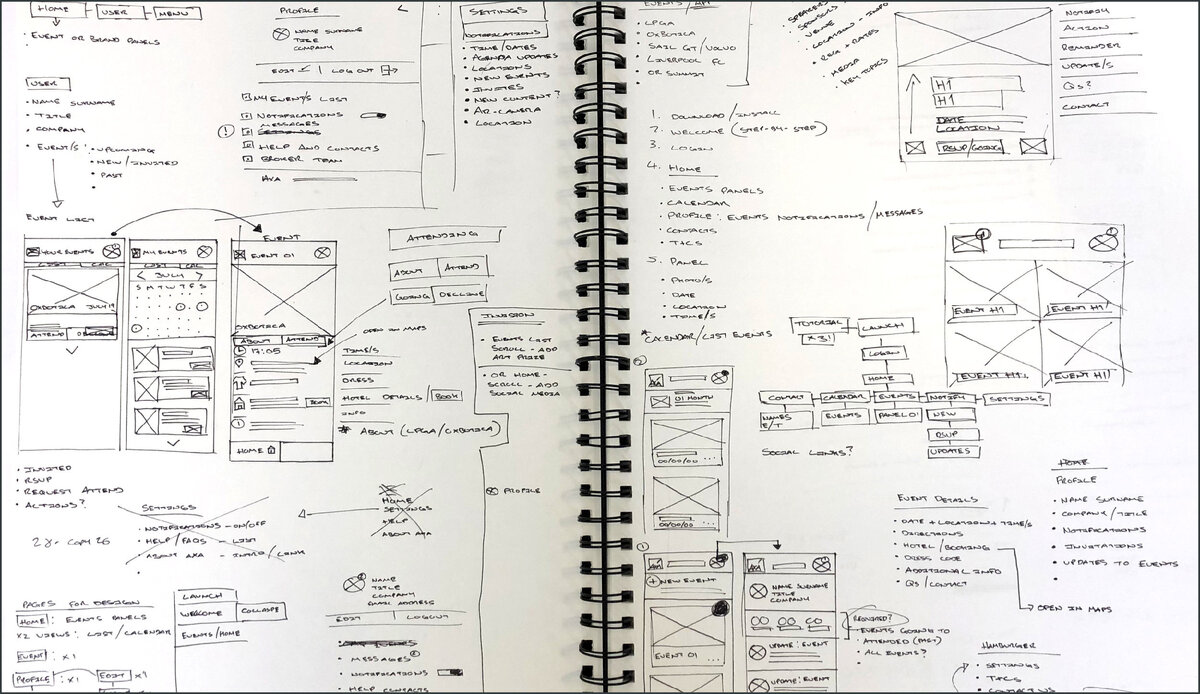 HOME
USER
MENU
• EVENT OR BRAND PANELS
USER
• NAME SURNAME
• TITLE
• COMPANY
• EVENT/S:
• UPCOMING
• NEW/INVITED
• PAST
EVENT LIST
PROFILE
NAME SURNAME
TITLE
COMPANY
EDIT
LOG OUT
MY EVENT/S LIST
NOTIFICATIONS
MESSAGES
SETTINGS
HELP AND CONTACTS
BROKER TEAM
AXA
SETTINGS
NOTIFICATIONS
• TIME/DATES
• AGENDA UPDATES
• LOCATIONS
• NEW EVENTS
• INVITES
• NEW CONTENT?
• AR-CAMERA
• LOCATION
YOUR EVENTS
LIST
CAL
OXBOTICA JULY 19
ATTEND
DECLINE
MY EVENTS
LIST
CAL
< JULY >
S M T W T F S
EVENT
EVENT 01
OXBOTICA
ABOUT
ATTEND
17:05
BOOK
HOME
ATTENDING
ABOUT
ATTEND
GOING
DECLINE
OPEN IN MAPS
TIME/S
LOCATION
DRESS
HOTEL DETAILS
BOOK
INFO
* ABOUT (LPGA/OXBOTICA)
INVASION
• EVENTS LIST
SCROLL - ADD
ART PRIZE
• OR HOME -
SCROLL - ADD
SOCIAL MEDIA
PROFILE
• INVITED
• RSVP
• REQUEST ATTEND
• ACTIONS?
SETTINGS
• NOTIFICATIONS - ON/OFF
• HELP/FAQS - LIST
• ABOUT AXA - INTRO/LINK
HOME
SETTINGS
HELP
ABOUT AXA
PAGES FOR DESIGN
HOME: EVENTS PANELS
X2 VIEWS: LIST/CALENDAR
EVENT: X1
PROFILE: X1
EDIT X1
LAUNCH
WELCOME
COLLAPSE
EVENTS/HOME
NAME
TITLE
COMPANY
EMAIL ADDRESS
EDIT
LOGOUT
• MESSAGES
• NOTIFICATIONS
• HELP CONTACTS
EVENTS/API
• LPGA
• OXBOTICA
• SAIL GT/VOLVO
• LIVERPOOL FC
• OR SUMMIT
• SPEAKERS
• SPONSORS
• VENUE
• LOCATION - INFO
• MEDIA
• KEY TOPICS
1. DOWNLOAD/INSTALL
2. WELCOME (STEP-BY-STEP)
3. LOGIN
4. HOME
• EVENTS PANELS
• CALENDAR
• PROFILE: EVENTS NOTIFICATIONS/MESSAGES
• CONTACTS
• T+CS
5. PANEL
• PHOTO/S
• DATE
• LOCATION
• TIME/S
* CALENDAR/LIST EVENTS
H1
H1
DATE
LOCATION
RSVP/GOING
NOTIFY
ACTION
REMINDER
UPDATE/S
QS?
CONTACT
EVENT H1
EVENT H1
EVENT H1
EVENT H1
TUTORIAL
X 3!
LAUNCH
LOGIN
HOME
CONTACT
CALENDAR
EVENTS
NOTIFY
SETTINGS
NAMES
E/T
EVENTS
PANEL 01
NEW
RSVP
UPDATES
SOCIAL LINKS?
2
AXA
01 MONTH
00/00/00
00/00/00
1
AXA
+ NEW EVENT
EVENT 01
AXA
NAME SURNAME
TITLE
COMPANY
UPDATE: EVENT
UPDATE: EVENT
REQUIRED?
• EVENTS GOING TO
• ATTENDED (PAST)
• ALL EVENTS?
EVENT DETAILS
• DATE + LOCATION + TIME/S
• DIRECTIONS
• HOTEL/BOOKING
• DRESS CODE
• ADDITIONAL INFO
• QS/CONTACT
OPEN IN MAPS
HOME
PROFILE
• NAME SURNAME
• COMPANY/TITLE
• NOTIFICATIONS
• INVITATIONS
• UPDATES TO EVENTS
HAMBURGER
• SETTINGS
• T+CS
• CONTACT US